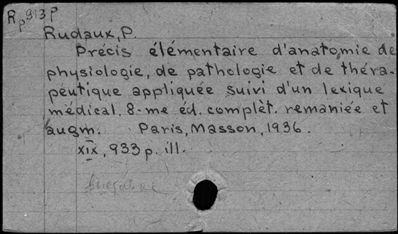 Rp813P
Rudaux, P.
Précis élémentaire d'anatomie de
physiologie, de pathologie et de théra-
peutique appliquée suivi d'un lexique
médical. 8-me éd. complèt. remaniée et
augm. Paris, Masson, 1936.
XIX, 933 p. ill.